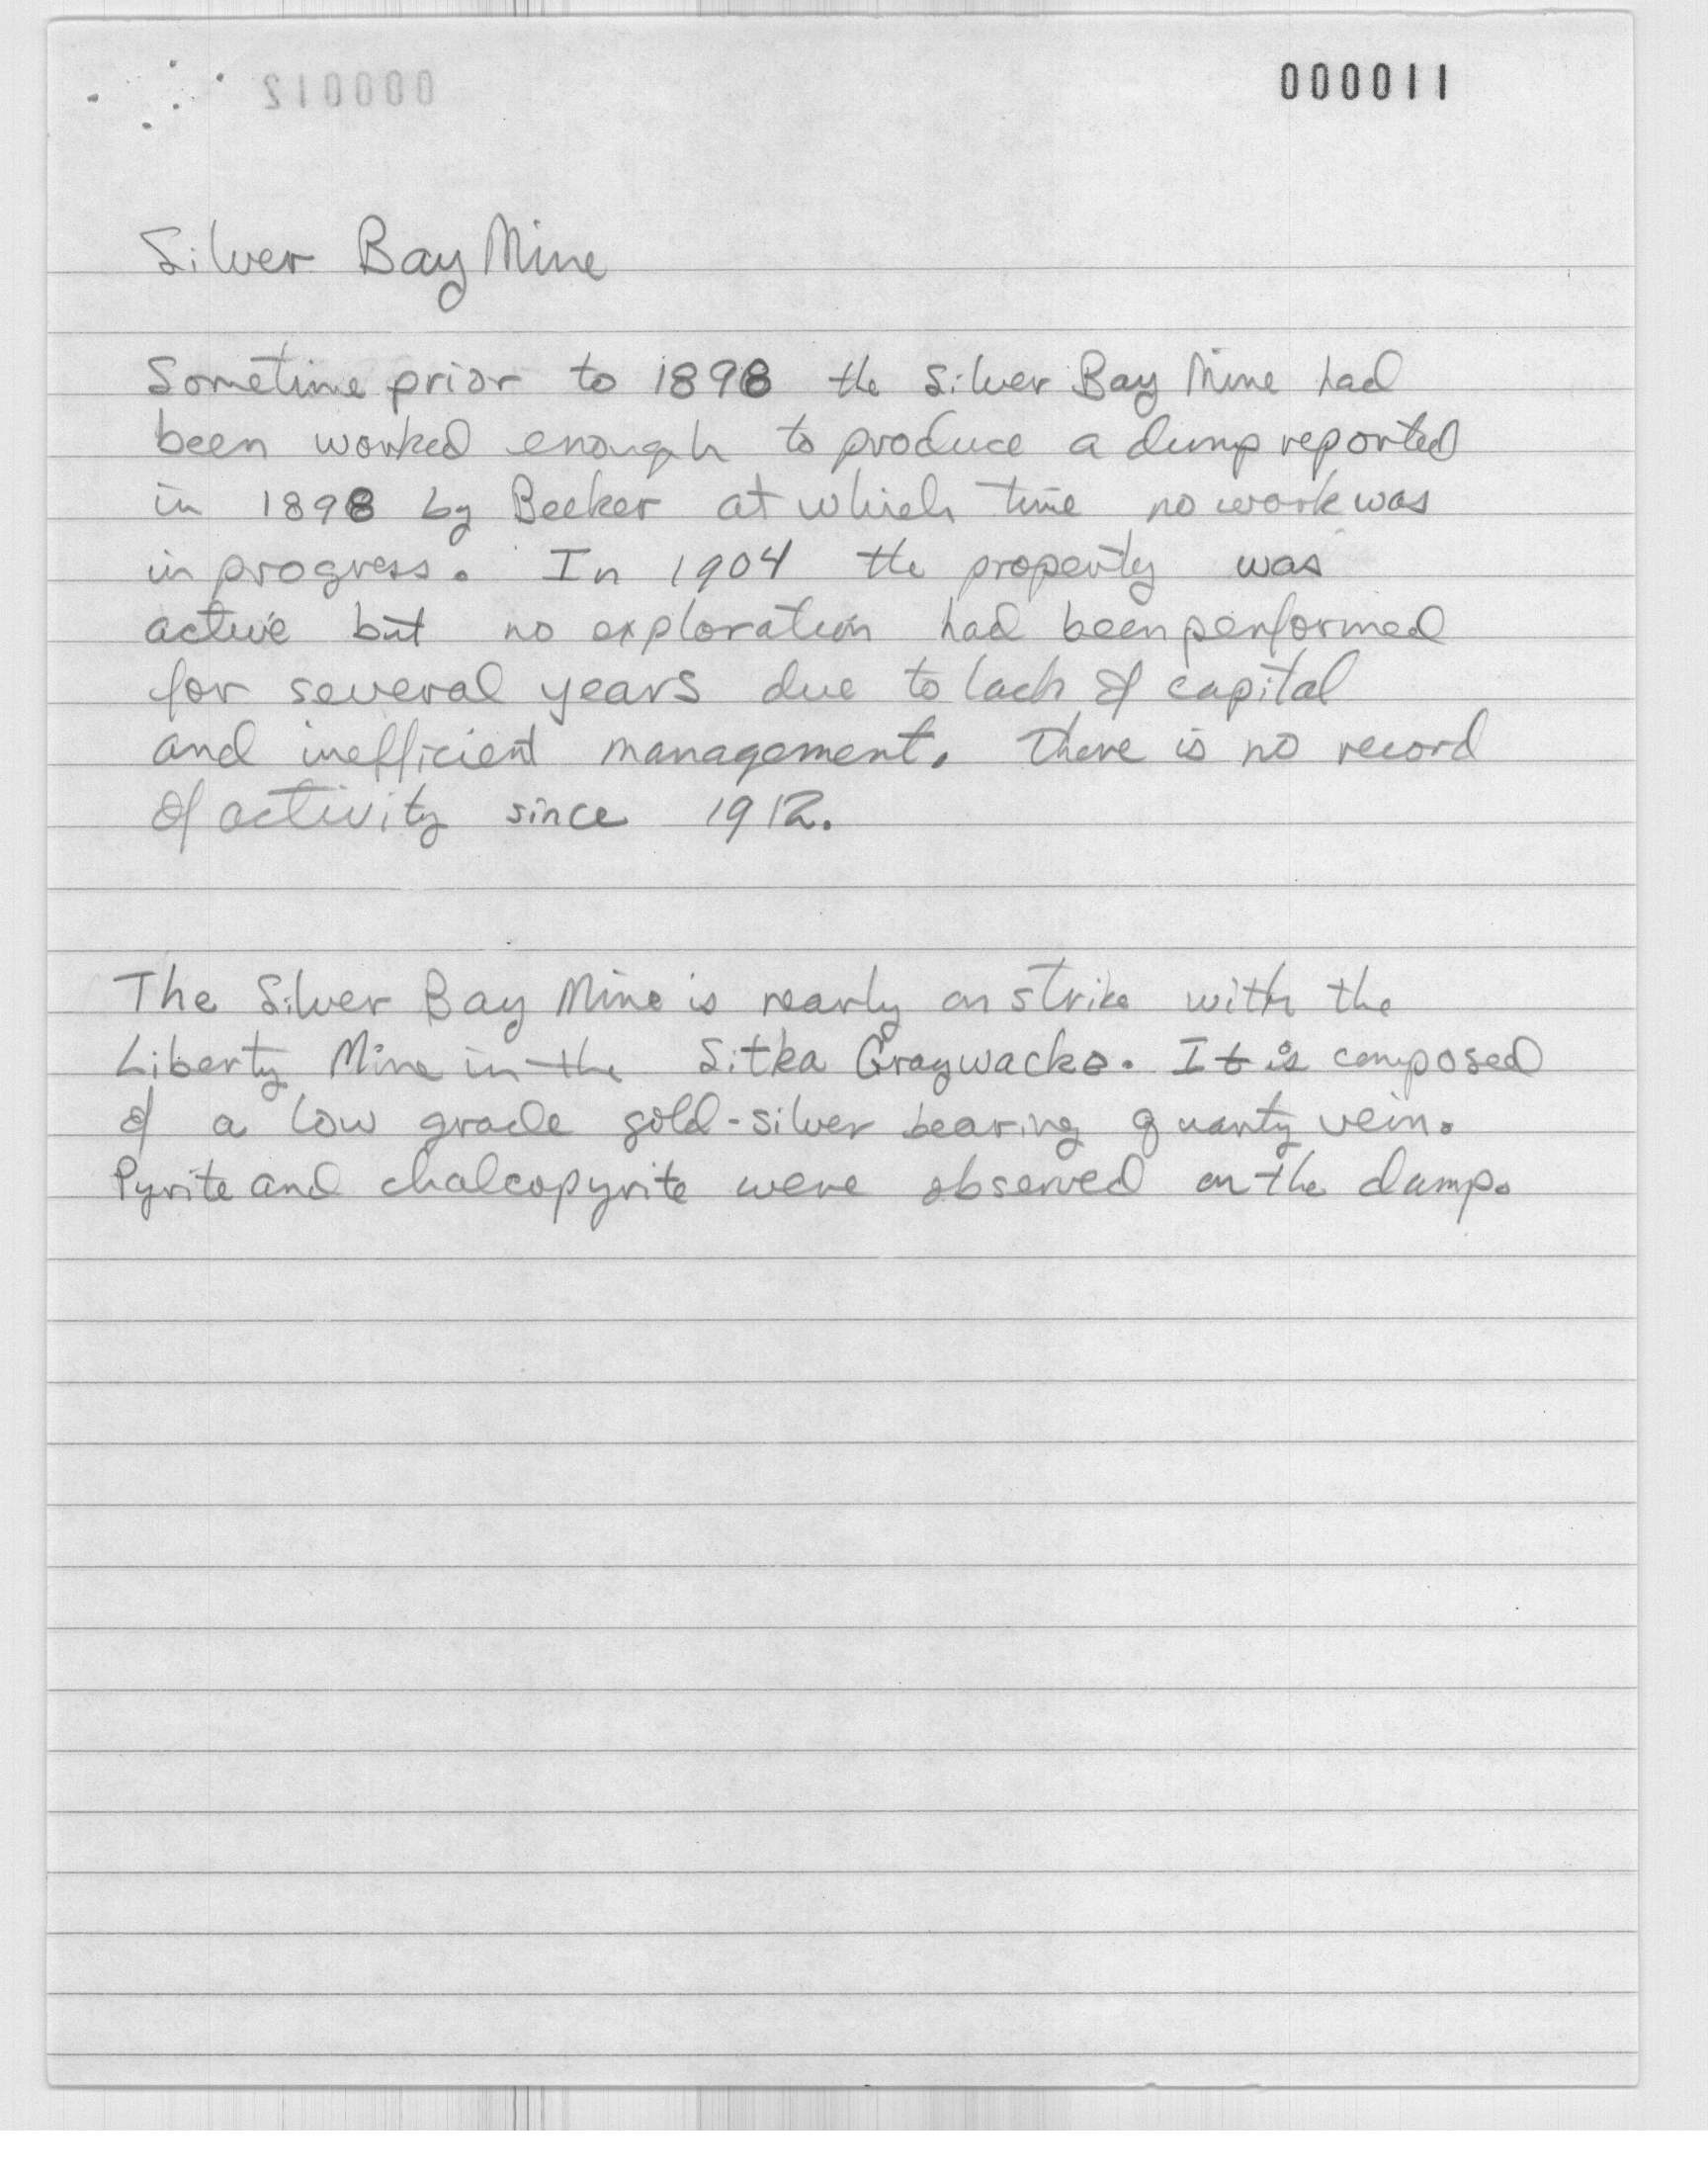 000011
000012
Silver Bay Mine
Sometime prior to 1898 the Silver Bay Mine had
been worked enough to produce a dump reported
in 1898 by Becker at which time no work was
in progress. In 1904 the property was
active but no exploration had been performed
for several years due to lack of capital
and inefficient management. There is no record
of activity since 1912.
The Silver Bay Mine is nearly on strike with the
Liberty Mine in the Sitka Graywacke. It is composed
of a low grade gold-silver bearing quartz vein.
Pyrite and chalcopyrite were observed on the dump.